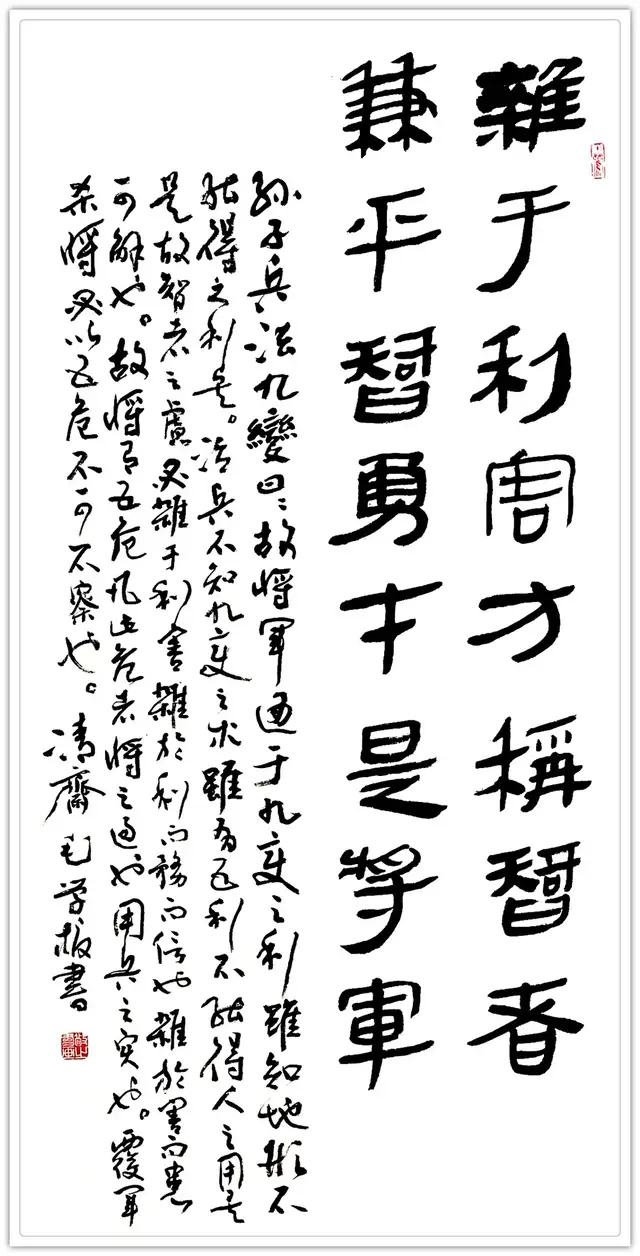 雜于利害方稱智者
兼平智勇才是將軍
孙子兵法九變曰：故將軍通于九变之利雖知地形不
能得之利矣。治兵不知九变之术雖五利不能得人之用矣
是故智者之慮必雜于利害雜於利而務而信也雜於害而患
可解也。故將有五危凡此危者將之過也用兵之灾也。覆軍
杀將必以五危不可不察也。清齋毛学書